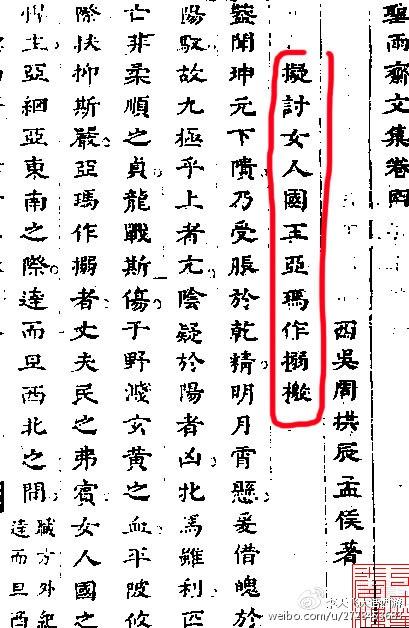 聖雨齋文集卷四
西吳周拱辰孟侯著
擬討女人國王亞瑪作搦檄
蓋聞坤元下隤乃受脤於乾精明月霄懸爰借魄於
陽馭故九極乎上者亢陰疑於陽者凶牝馬雖利匹
亡非柔順之貞龍戰斯傷于野濺玄黃之血平陂攸
際伏抑斯嚴亞瑪作搦者丈夫民之弗賓女人國之
悍主亞細亞東南之際達而旦西北之間
職方外紀
達而旦西